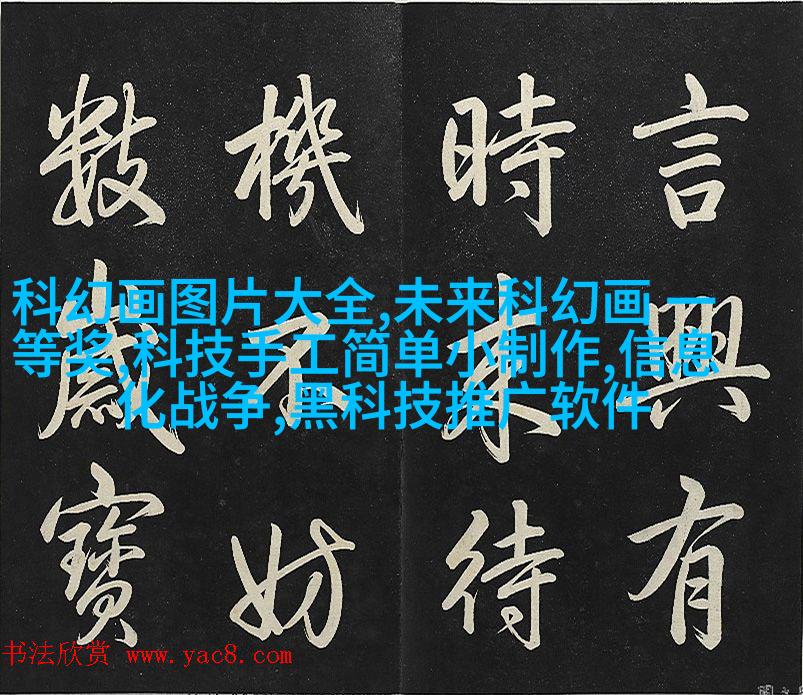 言興有
時待
機不妨
數歲寶
科幻画图片大全,未来科幻画 一
等奖,科技手工简单小制作,信息
化战争,黑科技推广软件
书法欣赏 www.yac8.com